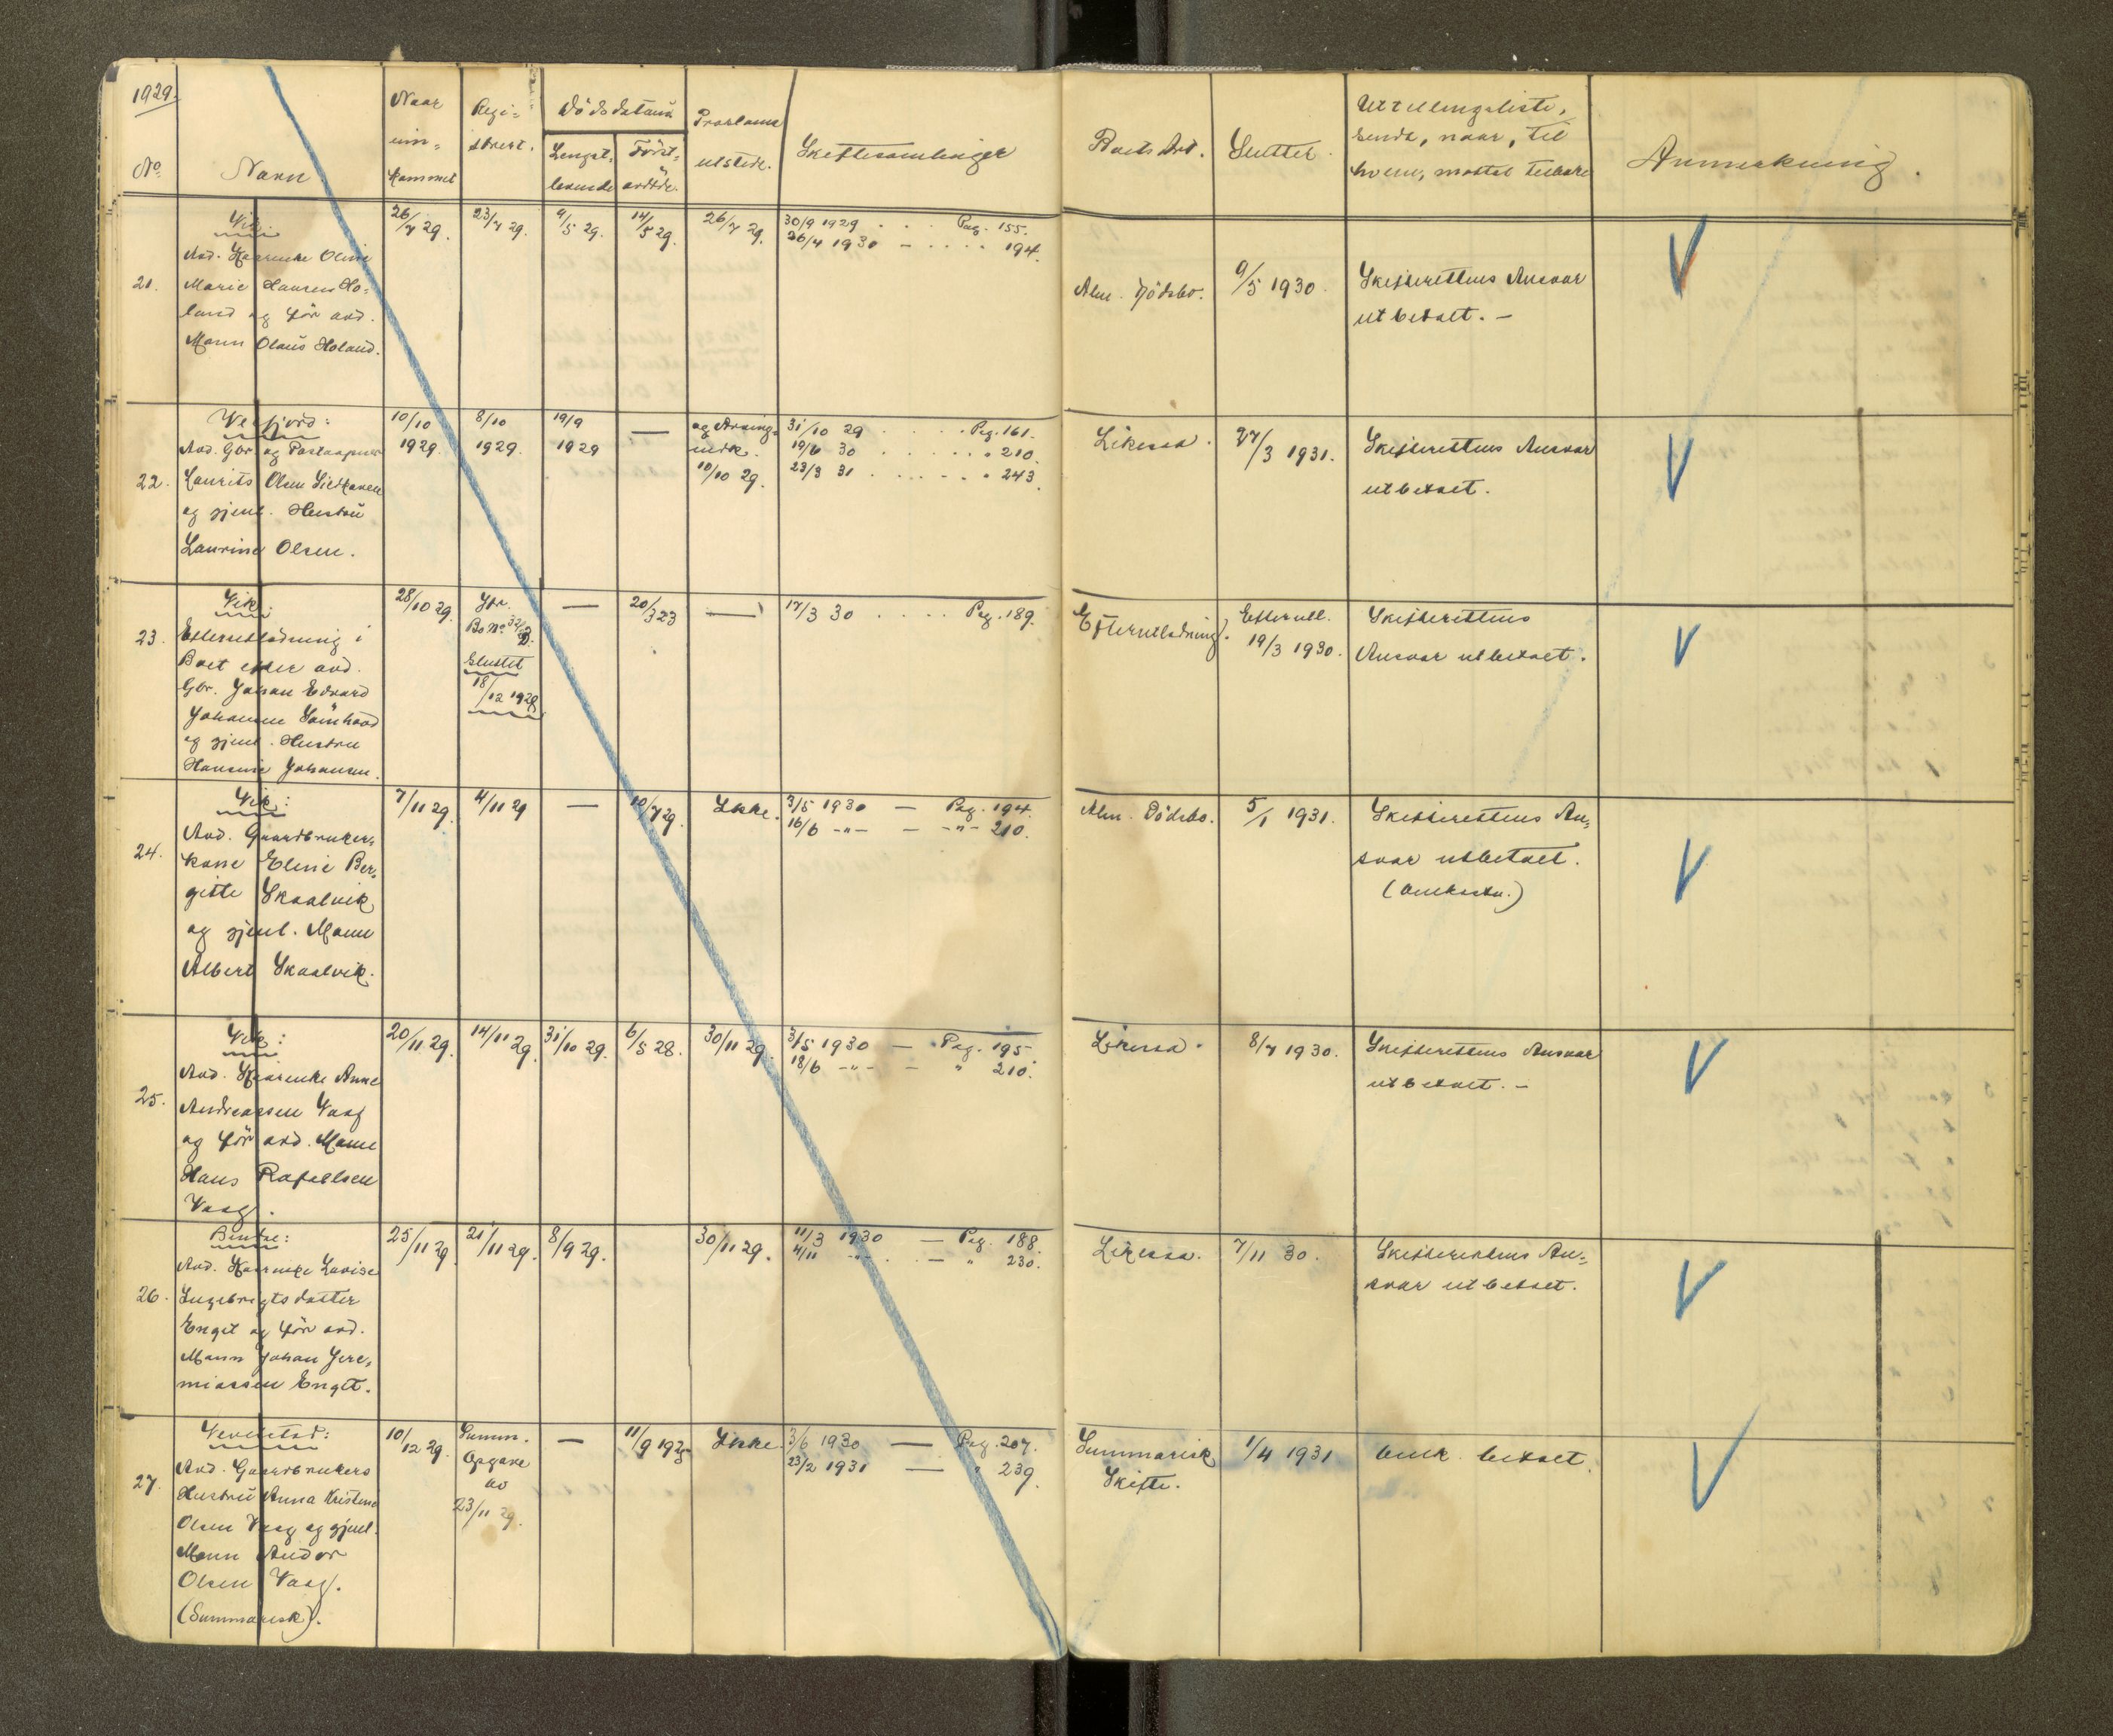 1929.
No.
Navn
Naar
inn-
kommet
Regi-
strert.
Dödsdatum
Lengst-
levende
Först-
avdöde.
Proclama
utstedt.
Skiftesamlinger
Boets Art.
Sluttet.
Uttellingsliste,
sendt, naar, til
hvem, mottat tilbake
Anmerkning.
21.
Vik.
Avd. Kaarenke Oline
Marie Hansen Ho-
land og för avd.
Mann Olaus Holand.
26/7 29.
23/7 29.
9/5 29.
14/5 29.
26/7 29.
30/9 1929 . . . Pag. 155.
26/4 1930 — . . . . 194.
Alm. Dödsbo.
9/5 1930.
Skifterettens Ansvar
utbetalt. —
22.
Velfjord:
Avd. Gbr. og Postaapner
Laurits Olsen Sildhaven
og gjenl. Hustru
Laurine Olsen.
10/10
1929.
8/10
1929.
19/9
1929
—
og Arving-
indk.
10/10 29.
31/10 29 . . . . Pag. 161.
19/6 30 . . . . . . 210.
23/3 31 . . . . . . 243.
Likessa.
27/3 1931.
Skifterettens Ansvar
utbetalt.
23.
Vik.
Efterutlodning i
Boet efter avd.
Gbr. Johan Edvard
Johansen Sömhovd
og gjenl. Hustru
Hansine Johansen.
28/10 29.
Jfr.
Bo No.
Sluttet
18/12 1928
—
20/3 23
—
17/3 30 . . . . Pag. 189.
Efterutlodning.
Efterutl.
19/3 1930.
Skifterettens
Ansvar utbetalt.
24.
Vik:
Avd. Gaardbruker-
kone Eline Ber-
gitte Skaalvik
og gjenl. Mann
Albert Skaalvik.
7/11 29.
4/11 29
—
10/7 29.
Ikke.
3/5 1930 — Pag. 194.
16/6 -"- — -"- 210.
Alm. Dödsbo.
5/1 1931.
Skifterettens An-
svar utbetalt.
25.
Vik:
Avd. Kaarenke Anne
Andreassen Vaag
og för avd. Mann
Hans Rafaelsen
Vaag.
20/11 29.
14/11 29.
31/10 29.
6/5 28.
30/11 29.
3/5 1930 — Pag. 195.
18/6 -"- — " 210.
Likessa.
8/7 1930.
Skifterettens Ansvar
utbetalt. —
26.
Bindal:
Avd. Kaarenke Lovise
Ingebrigtsdatter
Enget og för avd.
Mann Johan Jere-
miassen Enget.
25/11 29.
21/11 29.
8/9 29.
30/11 29.
11/3 1930 — Pag. 188.
4/11 -"- . — " 230.
Likessa.
7/11 30.
Skifterettens An-
svar utbetalt.
27.
Vevelstad:
Avd. Gaardbrukers
Hustru Anna Kristine
Olsen Vaag og gjenl.
Mann Andor
Olsen Vaag.
(Summarisk).
10/12 29.
Summ.
Opgave
av
23/11 29.
—
11/9 1925
Ikke.
3/6 1930 — Pag. 207.
23/2 1931 — " 239.
Summarisk
Skifte.
1/4 1931
betalt.